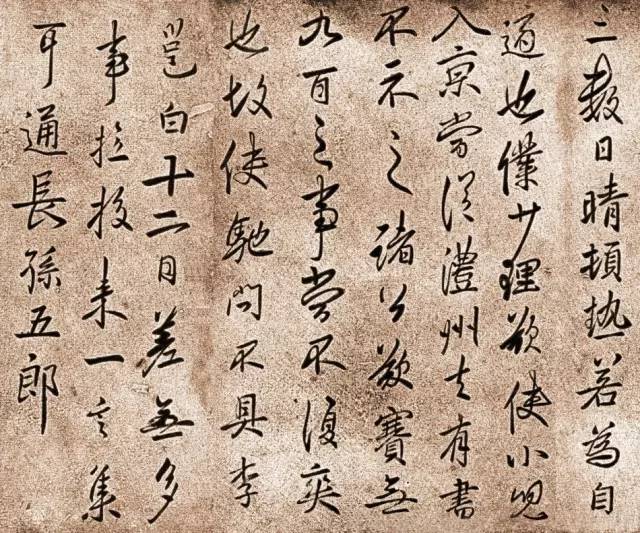 三數日晴頓熱若為自
適也僕少理欲使小兒
入京當從澧州去有書
不示之諸公欲賽無
九百之事當不復奕
也故使馳問不具李
邕白十二日差無多
事拉投来一言集
耳通長孫五郎